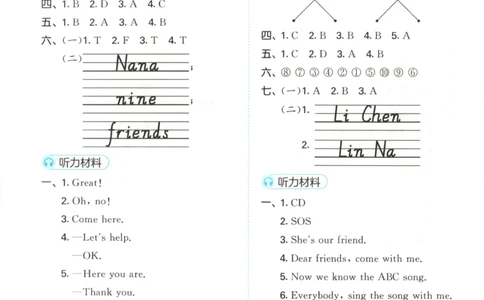 四、1. B 2. D 3. A 4. C
五、1. B 2. A 3. A 4. B
六、(一)1. T 2. F 3. T 4. T
(二) Nana;
nine;
friends
听力材料
一、1. Great!
2. Oh, no!
3. Come here.
4. —Let's help.
—OK.
5. —Here you are.
—Thank you.
四、1. C 2. B 3. B 4. B 5. A
五、1. C 2. D 3. A 4. B
六、⑧ ⑦ ③ ④ ② ① ⑤ ⑩ ⑨ ⑥
七、(一)1. A 2. B 3. A
(二)1. Li Chen
2. Lin Na
听力材料
一、1. CD
2. SOS
3. She's our friend.
4. Dear friends, come with me.
5. Now we know the ABC song.
6. Everybody, sing the song with me.